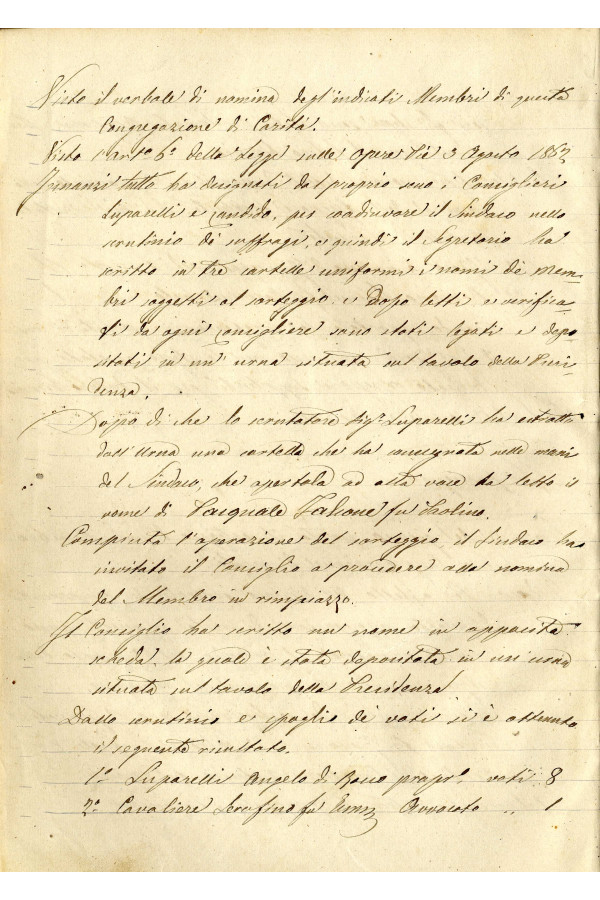 Visto il verbale di nomina degl'indicati Membri di questa
Congregazione di Carità.
Visto l'art.o 6.o della Legge sulle Opere Pie 3 Agosto 1862
Innanzi tutto ha designati dal proprio seno i Consiglieri
Luparelli e Candido, per coadiuvare il Sindaco nello
scrutinio dè suffragi, e quindi il Segretario ha
scritto in tre cartelle uniformi i nomi dè Mem-
bri soggetti al sorteggio, e Dopo letti e verifica-
ti da ogni Consigliere sono stati legati e depo
sitati in un'urna situata sul tavolo della Presi-
denza.
Dopo di che lo scrutatore Sig.r Luparelli ha estratto
dall'Urna una cartella che ha consegnata nelle mani
del Sindaco, che apertola ad alta voce ha letto il
nome di Pasquale Falcone fu Paolino.
Compiuta l'operazione del sorteggio il Sindaco ha
invitato il Consiglio a procedere alla nomina
del Membro in rimpiazzo.
Il Consiglio ha scritto un nome in apposita
scheda, la quale è stata depositata in un'urna
situata sul tavolo della Presidenza
Dallo scrutinio e spoglio de voti si è ottenuto
il seguente risultato.
1.o Luparelli Angelo di Rocco propr.o voti 8
2.o Cavaliere Serafino fu Avvocato " 1